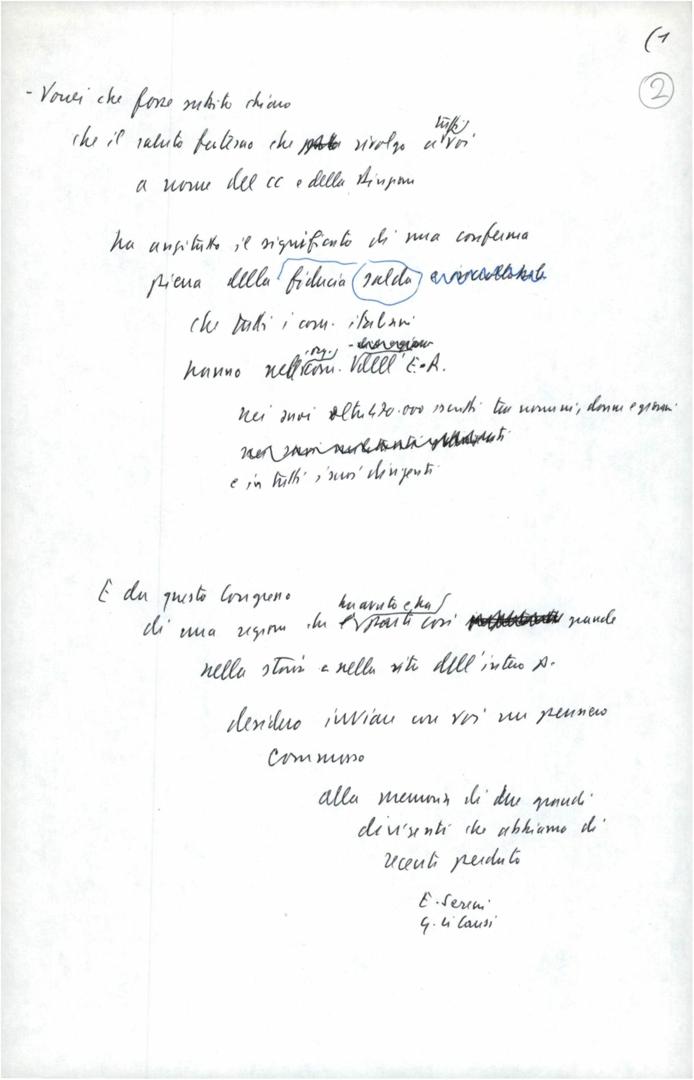 (1
2
- Vorrei che fosse subito chiaro
tutti
che il saluto fraterno che rivolgo a voi
a nome del CC e della Direzione
ha anzitutto il significato di una conferma
piena della fiducia salda
che tutti i com. italiani
org.
hanno nell' com. dell' E.R.
nei suoi oltre 470.000 iscritti tra uomini, donne e giovani
e in tutti i suoi dirigenti
E da questo Congresso
ha avuto e ha
di una regione che parte così grande
nella storia e nella vita dell'intero P.
desidero inviare con voi un pensiero
commosso
alla memoria di due grandi
dirigenti che abbiamo di
recente perduto
E. Sereni
G. Li Causi